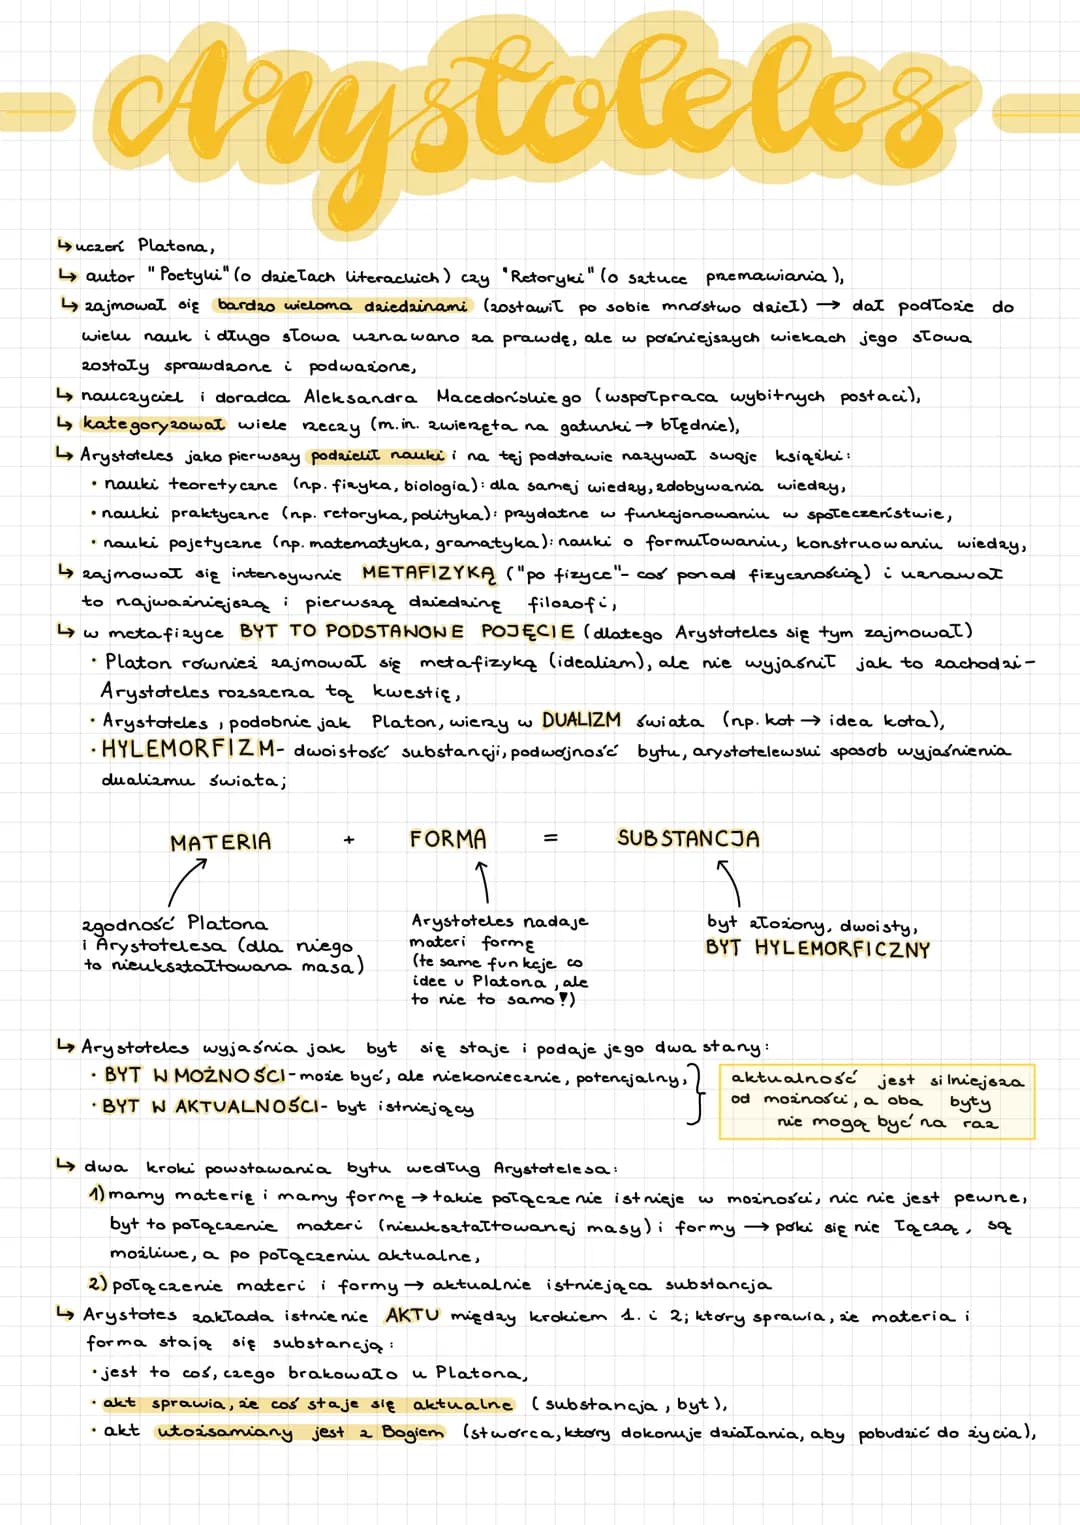 Arystoteles
↳ uczeń Platona,
↳ autor "Poetyki" (o dziełach literackich) czy "Retoryki" (o sztuce przemawiania),
↳ zajmował się bardzo wieloma dziedzinami (zostawił po sobie mnóstwo dzieł) → dał podłoże do
wielu nauk i długo słowa uznawano za prawdę, ale w późniejszych wiekach jego słowa
zostały sprawdzone i podważone,
↳ nauczyciel i doradca Aleksandra Macedońskiego (współpraca wybitnych postaci),
↳ kategoryzował wiele rzeczy (m.in. zwierzęta na gatunki → błędnie),
↳ Arystoteles jako pierwszy podzielił nauki i na tej podstawie nazywał swoje książki:
• nauki teoretyczne (np. fizyka, biologia): dla samej wiedzy, zdobywania wiedzy,
• nauki praktyczne (np. retoryka, polityka): przydatne w funkcjonowaniu w społeczeństwie,
• nauki pojetyczne (np. matematyka, gramatyka): nauki o formułowaniu, konstruowaniu wiedzy,
↳ zajmował się intensywnie METAFIZYKĄ ("po fizyce"- coś ponad fizycznością) i uznawał
to najważniejszą i pierwszą dziedzinę filozofi,
↳ w metafizyce BYT TO PODSTAWOWE POJĘCIE (dlatego Arystoteles się tym zajmował)
• Platon również zajmował się metafizyką (idealizm), ale nie wyjaśnił jak to zachodzi-
Arystoteles rozszerza tą kwestię,
• Arystoteles, podobnie jak Platon, wierzy w DUALIZM świata (np. kot → idea kota),
• HYLEMORFIZM- dwoistość substancji, podwójność bytu, arystotelewski sposób wyjaśnienia
dualizmu świata;
MATERIA + FORMA = SUBSTANCJA
zgodność Platona
i Arystotelesa (dla niego
to nieukształtowana masa)
Arystoteles nadaje
materi formę
(te same funkcje co
idee u Platona, ale
to nie to samo!)
byt złożony, dwoisty,
BYT HYLEMORFICZNY
↳ Arystoteles wyjaśnia jak byt się staje i podaje jego dwa stany:
• BYT W MOŻNOŚCI- może być, ale niekoniecznie, potencjalny,
• BYT W AKTUALNOŚCI- byt istniejący
aktualność jest silniejsza
od możności, a oba byty
nie mogą być na raz
↳ dwa kroki powstawania bytu według Arystotelesa:
1) mamy materię i mamy formę → takie połączenie istnieje w możności, nic nie jest pewne,
byt to połączenie materi (nieukształtowanej masy) i formy → póki się nie łączą, są
możliwe, a po połączeniu aktualne,
2) połączenie materi i formy → aktualnie istniejąca substancja
↳ Arystotes zakłada istnienie AKTU między krokiem 1. i 2; który sprawia, że materia i
forma stają się substancją:
• jest to coś, czego brakowało u Platona,
• akt sprawia, że coś staje się aktualne (substancja, byt),
• akt utożsamiany jest z Bogiem (stwórca, który dokonuje działania, aby pobudzić do życia),